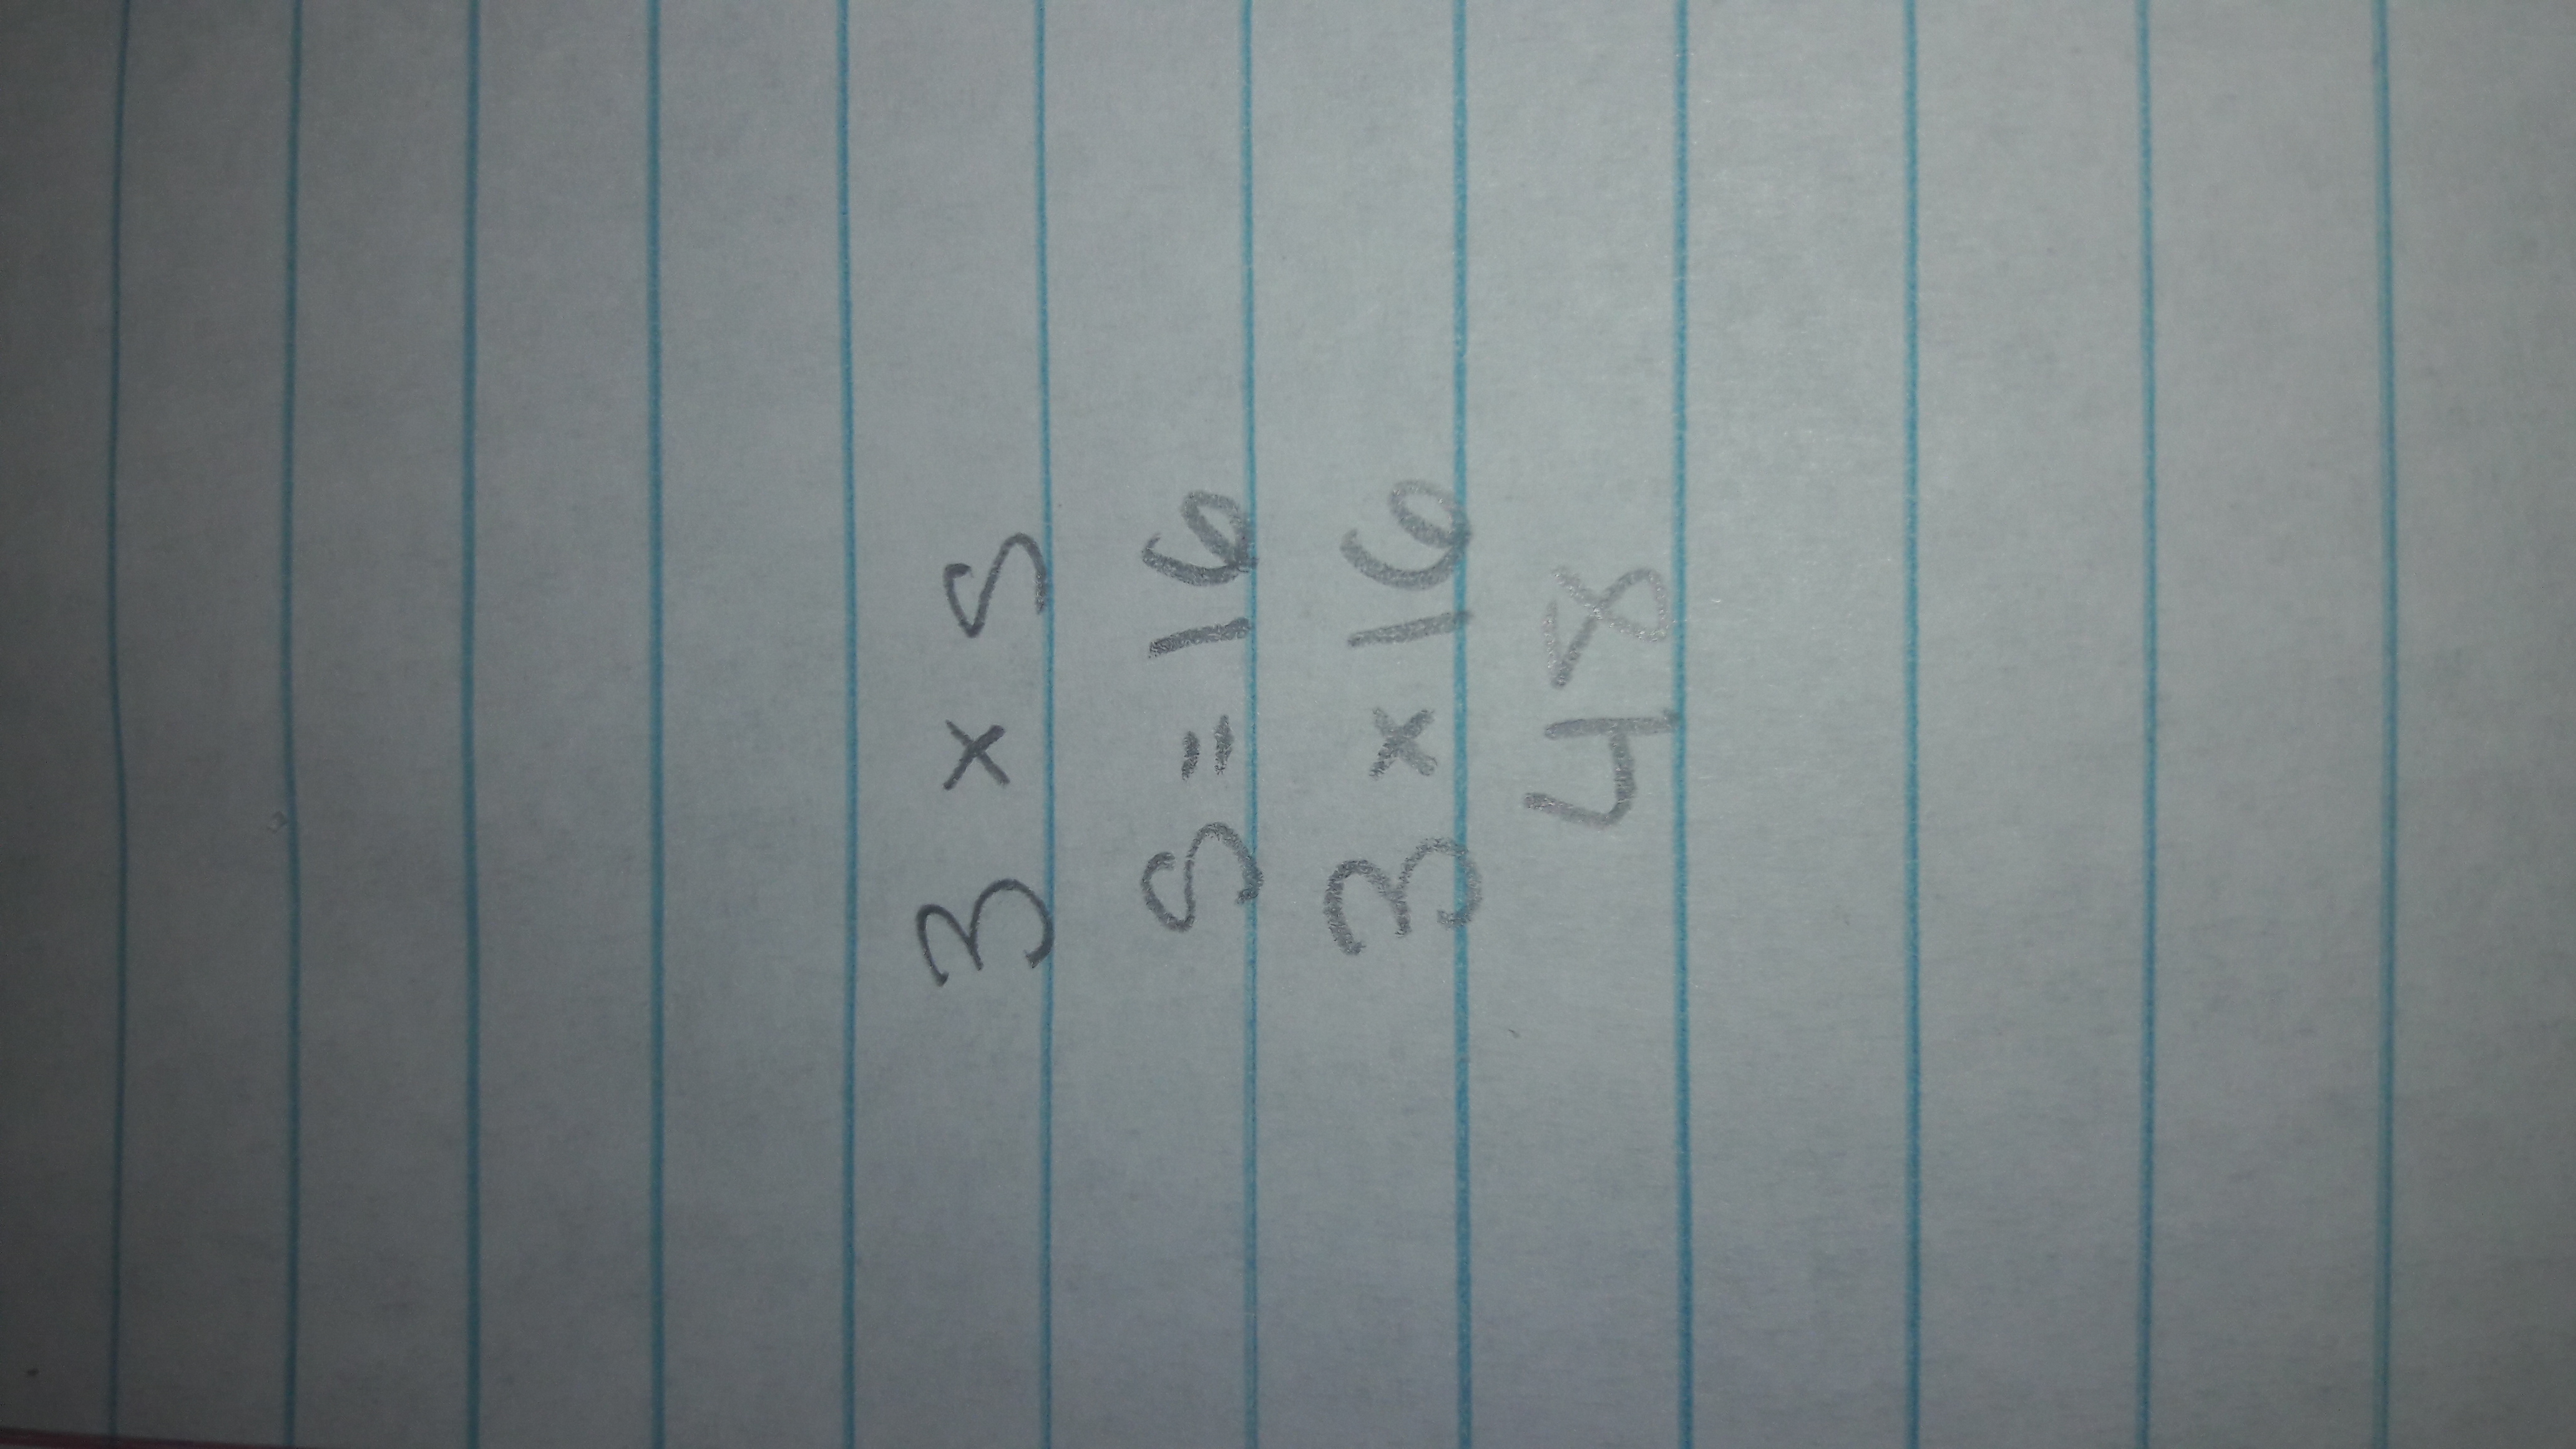 3 × S
S = 16
3 × 16
48